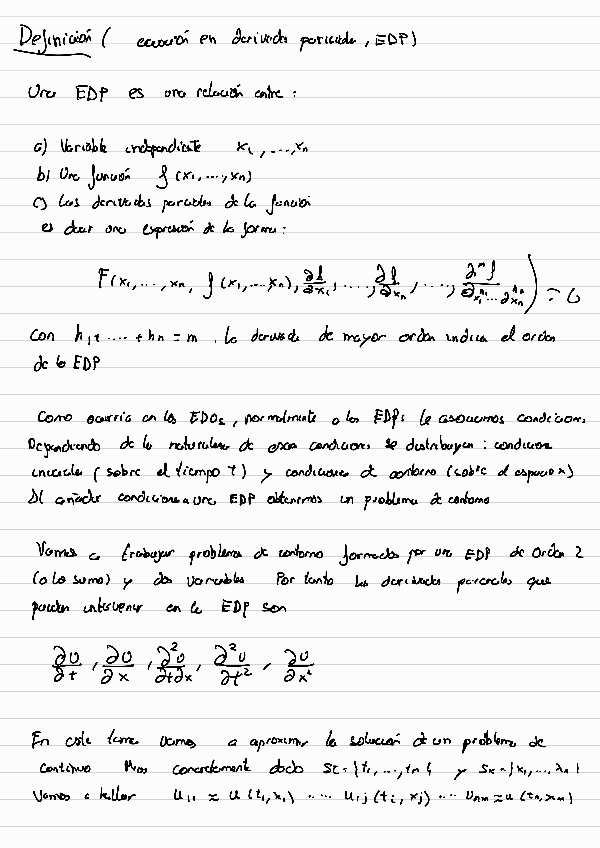 Definición ( ecuación en derivadas parciales, EDP)
Una EDP es una relación entre :
a) Variable independiente x₁, ..., xₙ
b) Una función f (x₁, ..., xₙ)
c) Las derivadas parciales de la función
es decir una expresión de la forma :
F(x₁, ..., xₙ, f (x₁, ... xₙ), ∂f/∂x₁, ..., ∂f/∂xₙ, ..., ∂ᵐf/∂x₁^h₁ ... ∂xₙ^hₙ) = 0
Con h₁+ ... + hₙ = m . La derivada de mayor orden indica el orden
de la EDP
Como ocurría en las EDOs, normalmente a las EDPs le asociamos condiciones.
Dependiendo de la naturaleza de esas condiciones se distribuyen : condiciones
iniciales ( sobre el tiempo t) y condiciones de contorno (sobre el espacio x)
Al añadir condiciones a una EDP obtenemos un problema de contorno
Vamos a trabajar problemas de contorno formados por una EDP de Orden 2
(a lo sumo) y dos variables Por tanto las derivadas parciales que
pueden intervenir en la EDP son
∂U/∂t , ∂U/∂x , ∂²U/∂t∂x , ∂²U/∂t² , ∂U/∂x²
En este tema vamos a aproximar la solución de un problema de
contorno Mas concretamente dado St={t₁, ..., tₙ} y Sx={x₁, ..., xₙ}
Vamos a hallar U₁₁ ≈ u (t₁,x₁) ..... Uᵢj (tᵢ, xj) ... Uₙₘ≈u (tₙ,xₘ)